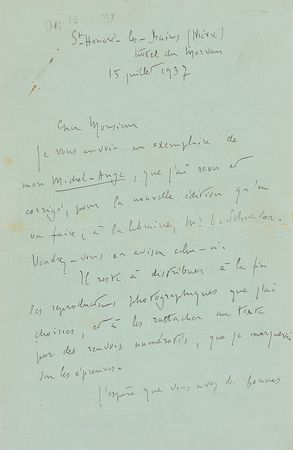 St Honoré les-Bains (Nièvre)
hôtel du Morvan
15 juillet 1937
Cher Monsieur
Je vous envoie un exemplaire de
mon Michel-Ange, que j'ai revu et
corrigé, pour la nouvelle édition qu'en
va faire, à la librairie, Mr. Schneider.
Voudrez-vous en aviser celui-ci.
Il reste à distribuer à la fin
les reproductions photographiques que j'ai
choisies, et à les rattacher au texte
par des renvois numérotés, que je marquerai
sur les épreuves.
J'espère que vous avez de bonnes